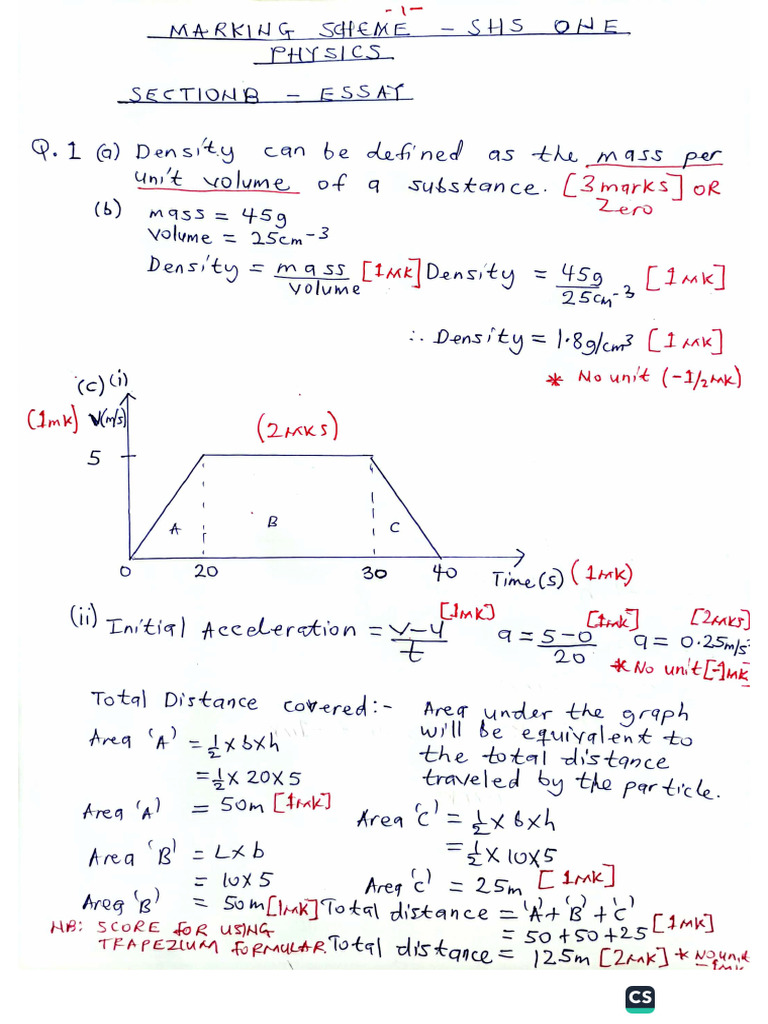 -1-
MARKING SCHEME - SHS ONE
PHYSICS
SECTION B - ESSAY
Q.1 (a) Density can be defined as the mass per
unit volume of a substance. [3 marks] OR
Zero
(b) mass = 45g
volume = 25cm-3
Density = mass/volume [1MK] Density = 45g/25cm-3 [1MK]
∴ Density = 1.8g/cm3 [1MK]
* No unit (-1/2MK)
(c)(i)
(1mk) V(m/s)
(2MKS)
5
A B C
0 20 30 40 Time(s) (1MK)
(ii) Initial Acceleration = v-u/t [1MK] a = 5-0/20 [1mk] a = 0.25m/s [2MKS]
* No unit [-1MK
Total Distance covered:- Area under the graph
will be equivalent to
the total distance
traveled by the particle.
Area 'A' = 1/2 x b x h
= 1/2 x 20 x 5
Area 'A' = 50m [1MK]
Area 'C' = 1/2 x b x h
= 1/2 x 10 x 5
Area 'C' = 25m [1MK]
Area 'B' = L x b
= 10 x 5
Area 'B' = 50m [1MK]
Total distance = 'A' + 'B' + 'C'
= 50 + 50 + 25 [1MK]
NB: SCORE FOR USING
TRAPEZIUM FORMULAR.
Total distance = 125m [2MK] * No unit
CS